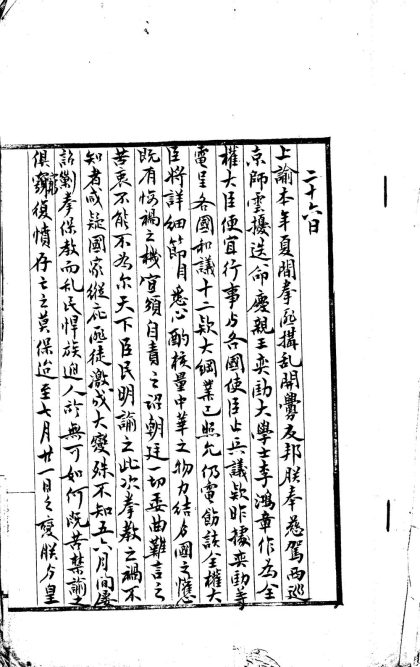 二十六日
上諭本年夏間拳匪搆乱開釁友邦朕奉慈駕西巡
京師雲擾迭命慶親王奕劻大學士李鴻章作為全
權大臣便宜行事与各國使臣止兵議欵昨據奕劻等
電呈各國和議十二欵大綱業已照允仍電飭該全權大
臣將詳細節目悉心酌核量中華之物力結与國之懽
既有悔禍之機宜頒自責之詔朝廷一切委曲難言之
苦衷不能不為尔天下臣民明諭之此次拳教之禍不
知者咸疑國家縱庇匪徒激成大變殊不知五六月間屢
詔剿拳保教而乱民悍族迫人於無可如何既苦禁諭之
俱窮復憤存亡之莫保迨至七月廿一日之變朕与皇